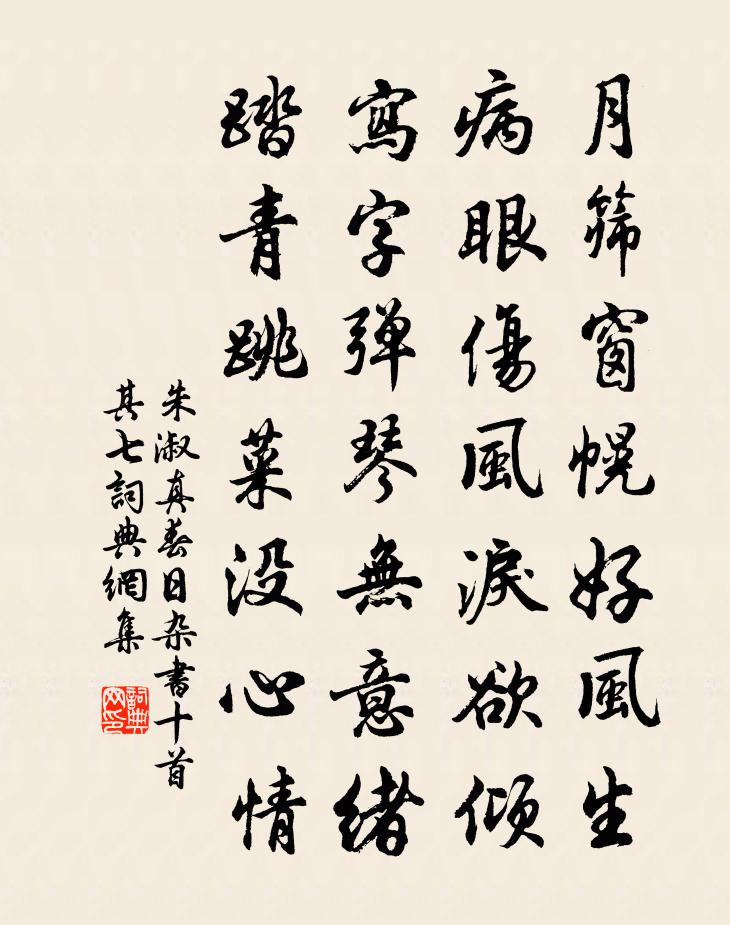 月筛窗幌好風生
病眼傷風淚欲傾
寫字弹琴無意緒
踏青跳菜没心情
朱淑真春日杂書十首
其七詞典網集
詞典
网印